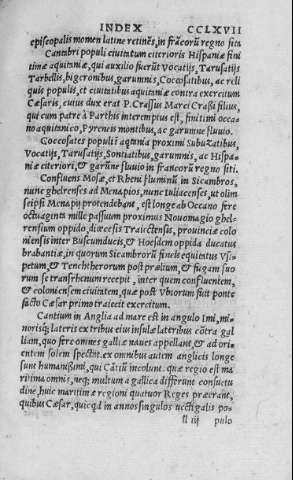 INDEX CCLXVII
episcopalis nomen latine retinēs, in frācorū regno siti
Cantabri populi ciuitatum citerioris Hispaniæ fini
timæ aquitaniæ, qui auxilio fuerūt Vocatijs, Tarusatijs
Tarbellis, bigeronibus, garumnis, Cocosatibus, ac reli
quis populis, et ciuitatibus aquitaniæ contra exercitum
Cæsaris, cuius dux erat P. Crassus Marci Crassi filius,
qui cum patre à Parthis interemptus est, finitimi occa
no aquitanico, Pyreneis montibus, ac garumne fluuio.
Cocosates populi aqtania proximi Subuzatibus,
Vocatijs, Tarusatijs, Sontiatibus, garumnis, ac Hispa
niæ citeriori, & garūne fluuio in francorū regno siti.
Confluens Mosæ, et Rheni fluminū in Sicambros,
nunc ghelrenses ad Menapios, nunc Iuliacenses, ut olim
seipsi Menapij protendebant, est longe ab Oceano fere
octuaginta mille passuum proximus Nouomagio ghel-
rensium oppido, diæcesis Traiectensis, prouinciæ colo
niensis inter Buscumducis, & Hoesdem oppida ducatus
brabantiæ, in quorum Sicambrorū fineis equientus Vsi
petum, & Tenchtherorum post prælium, & fugam suo
rum se transrhenum recepit, inter quem confluentem,
& coloniensem ciuitatem, quæ post Vbiorum fuit ponte
facto Cæsar primo traiecit exercitum.
Cantium in Anglia ad mare est in angulo Imi, mi/
norisq; lateris ex tribus eius insulæ lateribus cōtra gal
liam, quo fere omnes galliæ naues appellant, & ad ori/
entem solem spectat. ex omnibus autem anglicis longe
sunt humanissimi, qui Cātiū incolunt. quæ regio est ma
ritima omnis, neq; multum a gallica differunt consuetu
dine, huic maritimæ regioni quatuor Reges præerant,
quibus Cæsar, quicqd in annos singulos uectigalis po-
ll iij pulo